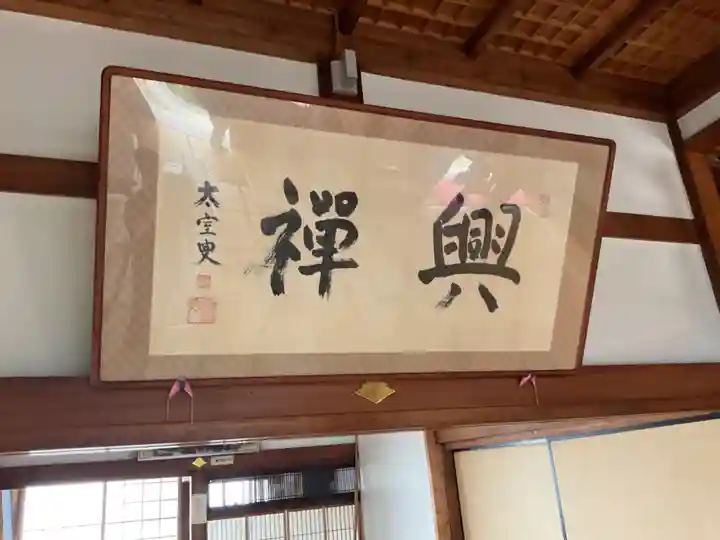 興禪
太室叟